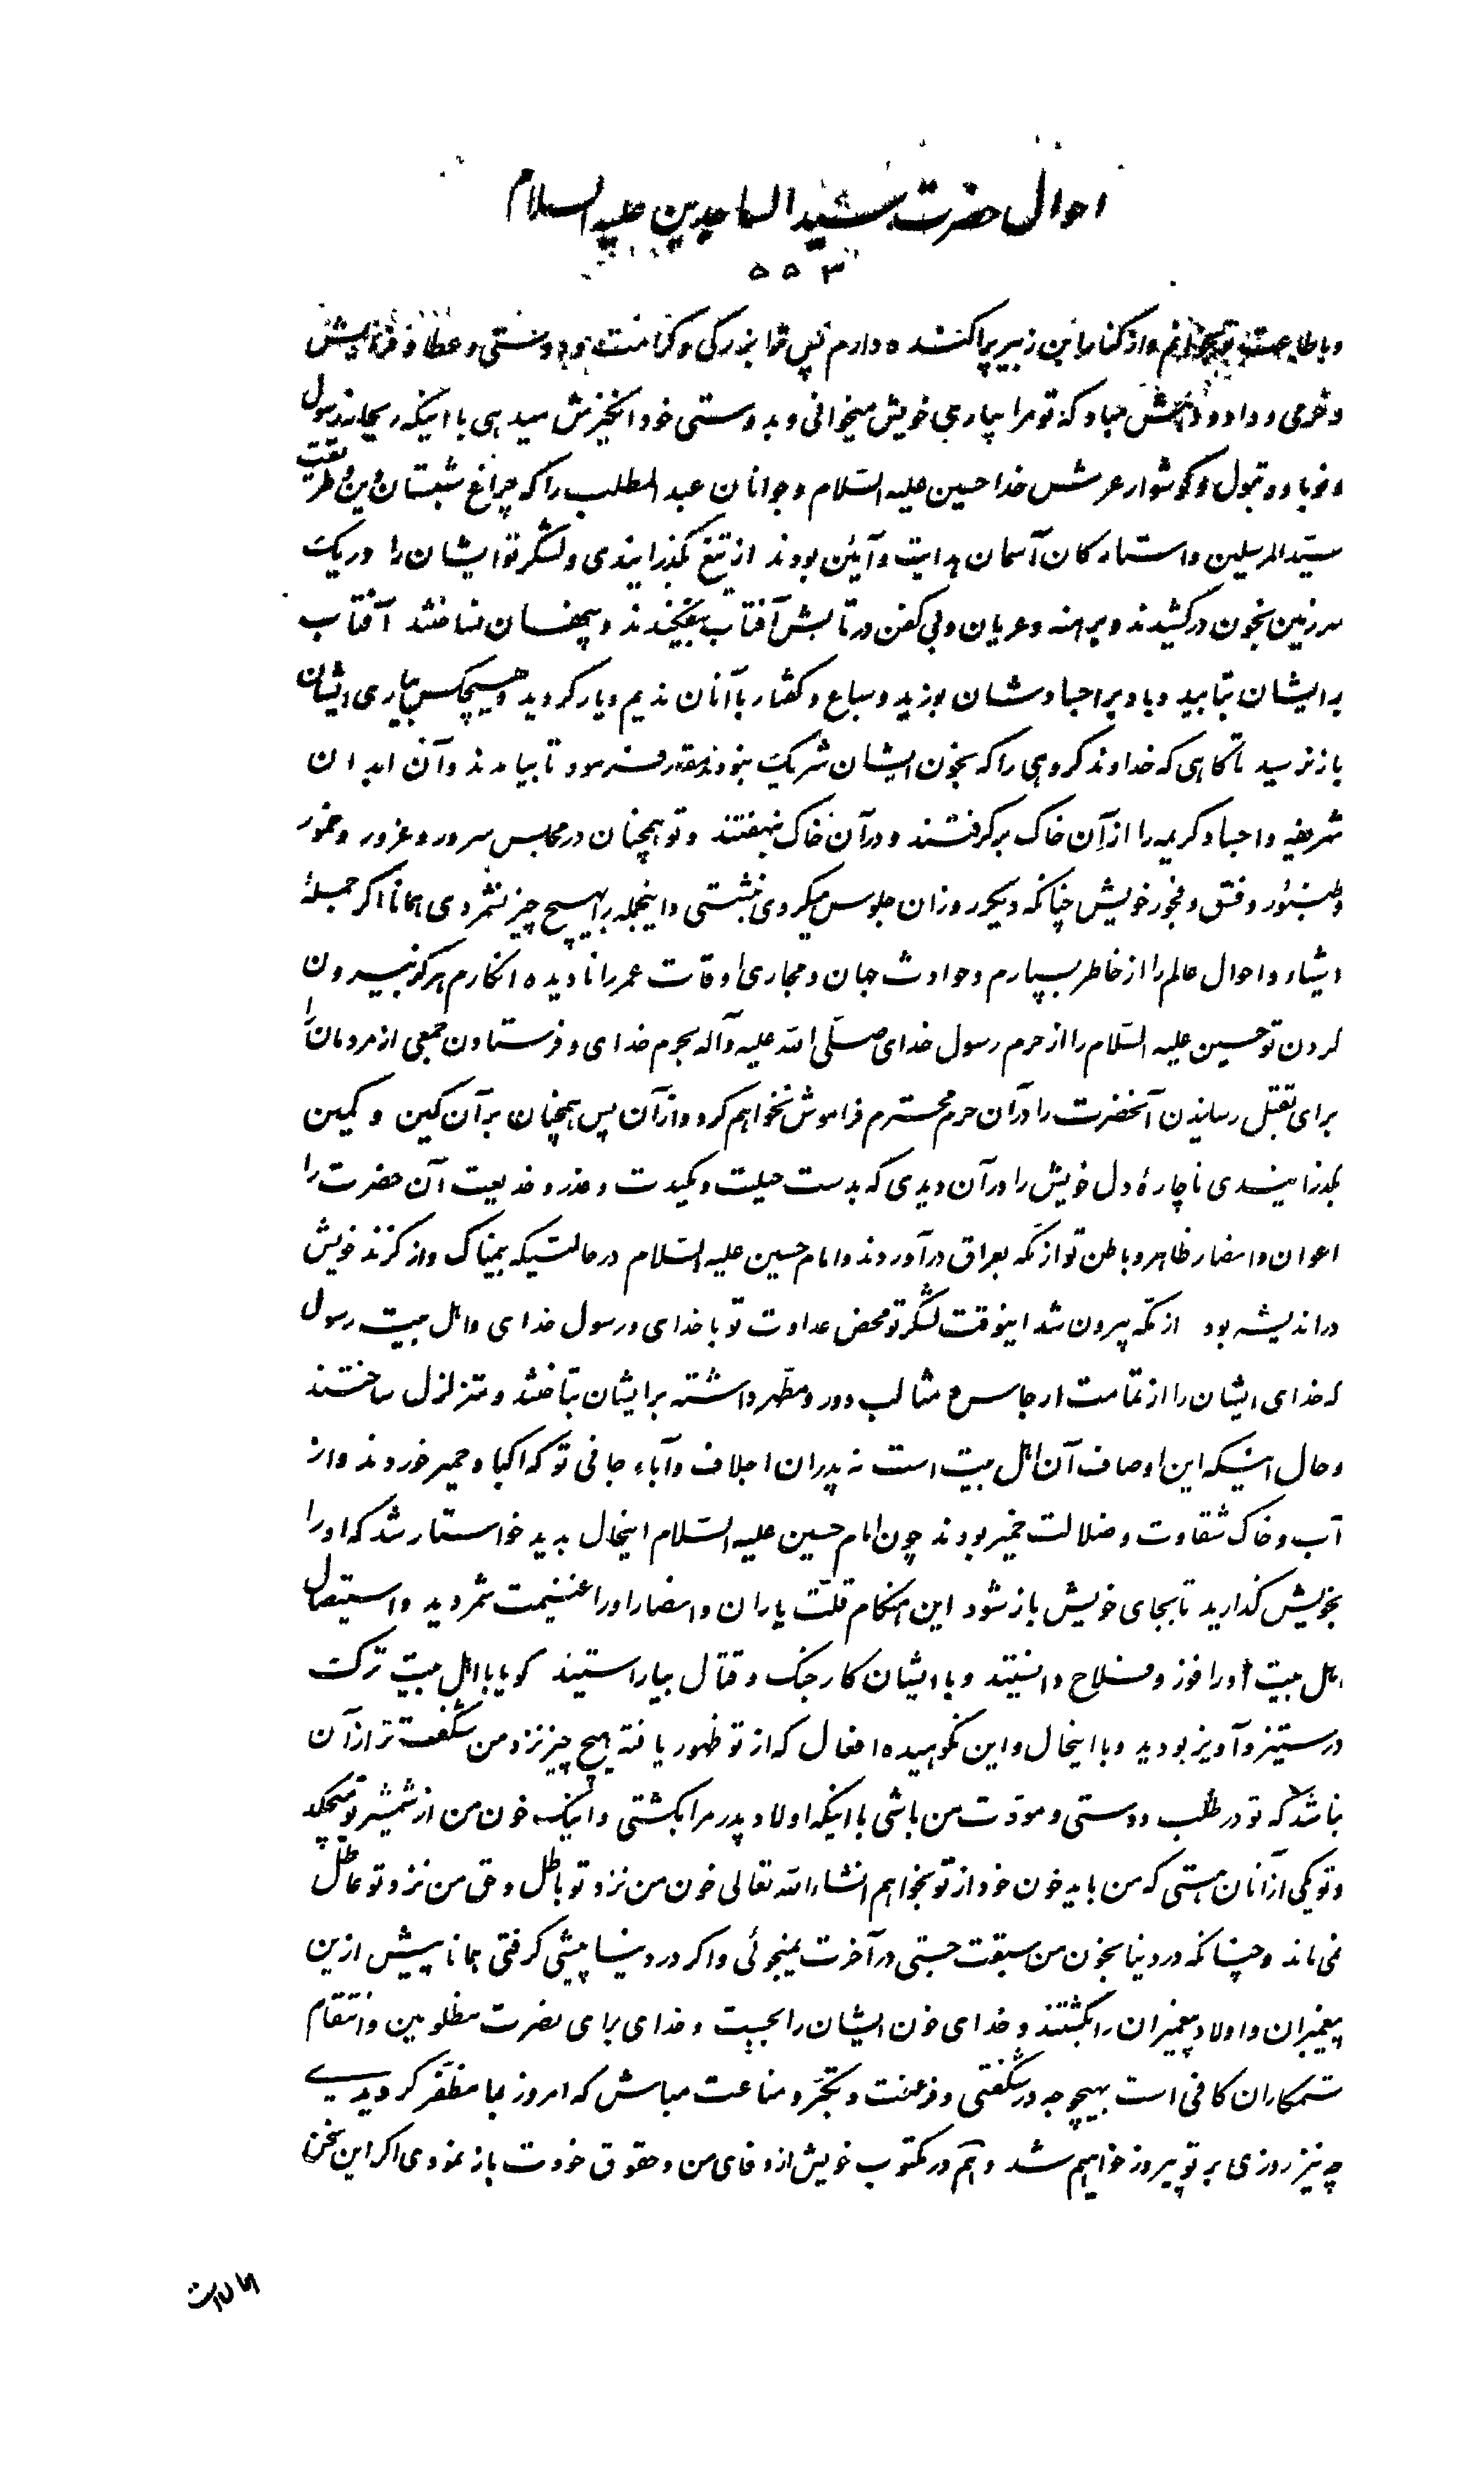 احوال حضرت سید الساجدین علیه السلام
۵۵۳
و باطاعت تو بخوانم و از کنار ابن زبیر پراکنده دارم پس ترا بزرگی و کرامت و دوستی و عطا و
و خرمی و داد و مباد که تو مرا بیاری خویش میخوانی و بدوستی خود انگیزش میدهی با اینکه ریحانه رسول
و نوباوه بتول و گوشوار عرش خدا حسین علیه السّلام و جوانان عبد المطلب را که چراغ شبستان دین و طریقت
سیّد المرسلین و ستارگان آسمان هدایت و آئین بودند از تیغ بگذرانیدی و لشگر تو ایشان را در یک
سرزمین بخون در کشیدند و برهنه و عریان و بی کفن در تابش آفتاب بیفکندند و پنهان نساختند آفتاب
بر ایشان بتابید و باد بر اجسادشان بوزید و سباع و کفتار با آنان ندیم و یار گردید و هیچکس بیاری ایشان
باز نرسید تا گاهی که خداوند گروهی را که بخون ایشان شریک نبودند مقدر فرمود تا بیامدند و آن ابدان
شریفه و اجساد کریمه را از آن خاک برگرفتند و در آن خاک بنهفتند و تو همچنان در مجلس سرور و غرور و خمور
و طنبور و فسق و فجور خویش چنانکه دیگر روزان جلوس میکردی بنشستی و اینجمله را بهیچ چیز نشمردی همانا اگر جمله
اشیاء و احوال عالم را از خاطر بسپارم و حوادث جهان و مجاری اوقات عمر را نادیده انگارم هرگز بیرون
کردن تو حسین علیه السّلام را از حرم رسول خدای صلّی الله علیه و آله بحرم خدای و فرستادن جمعی از مردمان را
برای بقتل رسانیدن آنحضرت را در آن حرم محترم فراموش نخواهم کرد و از آن پس همچنان بر آن کین و کمین
بگذرانیدی تا چارهٔ دل خویش را در آن دیدی که بدست حیلت و مکیدت و غدر و خدیعت آن حضرت را
اعوان و انصار ظاهر و باطن تو از مکّه بعراق در آوردند و امام حسین علیه السّلام در حالتیکه بیمناک و از گزند خویش
در اندیشه بود از مکّه بیرون شد اینوقت لشگر تو محض عداوت تو با خدای و رسول خدای و اهل بیت رسول
که خدای ایشان را از تمامت ارجاس و مثالب دور و مطهّر داشته بر ایشان بتاختند و متزلزل ساختند
و حال اینکه این اوصاف آن اهل بیت است نه پدران اجلاف و آباء جافی تو که اکباد حمیر خوردند و از
آب و خاک شقاوت و ضلالت خمیر بودند چون امام حسین علیه السّلام اینحال بدید خواستار شد که او را
بخویش گذارید تا بجای خویش باز شود این هنگام قلّت یاران و انصار او را غنیمت شمردید و استیصال
اهل بیت او را فوز و فلاح دانستید و با ایشان کار جنگ و قتال بیاراستید گویا با اهل بیت ترک
در ستیز و آویز بودید و با اینحال و این نکوهیده افعال که از تو ظهور یافته هیچ چیز نزد من شگفت تر از آن
نباشد که تو در طلب دوستی و مودّت من باشی با اینکه اولاد پدر مرا بکشتی و اینک خون من از شمشیر تو میچکد
و تو یکی از آنان هستی که من باید خون خود از تو بخواهم انشاء الله تعالی خون من نزد تو باطل و حق من نزد تو عاطل
نمی ماند و چنانکه در دنیا بخون من سبقت جستی در آخرت نمیجوئی و اگر در دنیا پیشی گرفتی همانا پیش از این
پیغمبران و اولاد پیغمبران را بکشتند و خدای خون ایشان را بجست و خدای برای نصرت مظلومین و انتقام
ستمکاران کافی است بهیچوجه در شگفتی و تجبّر و مناعت مباش که امروز بما مظفّر گردیدی
چه نیز روزی بر تو پیروز خواهیم شد و هم در مکتوب خویش از وفای من و حقوق خودت باز نمودی اگر این سخن